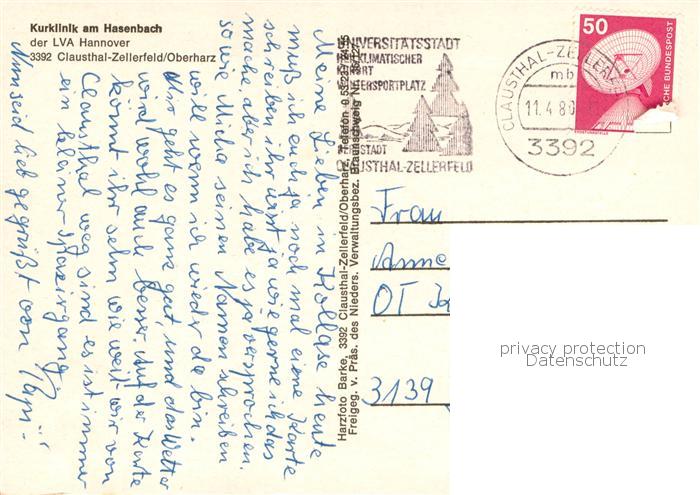 Kurklinik am Hasenbach
der LVA Hannover
3392 Clausthal-Zellerfeld/Oberharz
Meine Lieben in Kollase heute
muß ich euch ja noch mal eine Karte
schreiben ihr wist ja wie gerne ich das
mache aber ich habe es ja versprochen.
so wie Micha seinen Namen schreiben
will wenn ich wieder da bin.
Mir geht es ganz gut, und das Wetter
wird wohl auch besser. Auf der Karte
könnt ihr sehn wie weit wir von
Clausthal weg sind es ist immer
ein kleiner Spaziergang.
Nun seid lieb gegrüßt von
Harzfoto Barke, 3392 Clausthal-Zellerfeld/Oberharz, Telefon 0 53 23/
Freigeg. v. Präs. des Nieders. Verwaltungsbez. Braunschweig Nr.
UNIVERSITÄTSSTADT
HEILKLIMATISCHER
KURORT
WINTERSPORTPLATZ
CLAUSTHAL-ZELLERFELD
CLAUSTHAL-ZELLERF
mb
11.4.80
3392
50
DEUTSCHE BUNDESPOST
Frau
Anne
OT
3139
privacy protection
Datenschutz